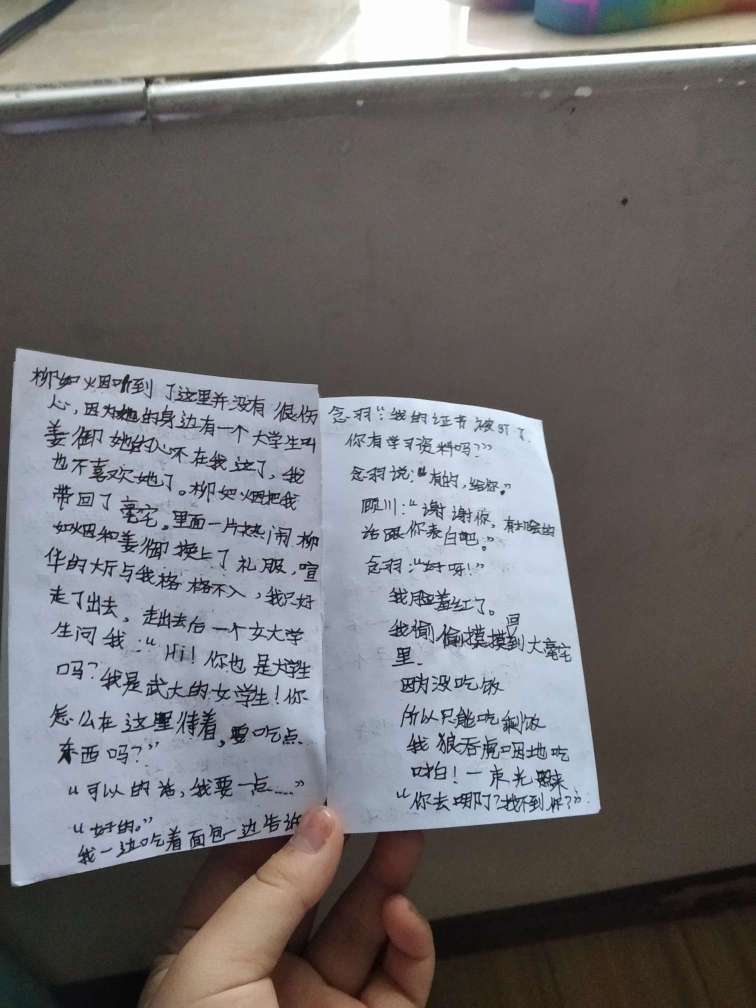 柳如烟听到了这里并没有很伤
心,因为她的身边有一个大学生叫
姜御她的心不在我这了,我
也不喜欢她了。柳如烟把我
带回了豪宅。里面一片热闹柳
如烟和姜御换上了礼服,喧
华的大厅与我格格不入,我只好
走了出去,走出去后一个女大学
生问我:“Hi!你也是大学生
吗?我是武大的女学生!你
怎么在这里待着,要吃点
东西吗?”
“可以的话,我要一点……”
“好的。”
我一边吃着面包一边告诉
念羽:“我的证书被 了.
你有学习资料吗?”
念羽说:“有的,给你。”
顾川:“谢谢你,有机会的
话跟你表白吧。”
念羽:“好呀!”
我脸羞红了。
我偷偷摸摸回到大豪宅
里.
因为没吃饭
所以只能吃剩饭
我狼吞虎咽地吃
啪!一束光照来
“你去哪了?找不到你?”